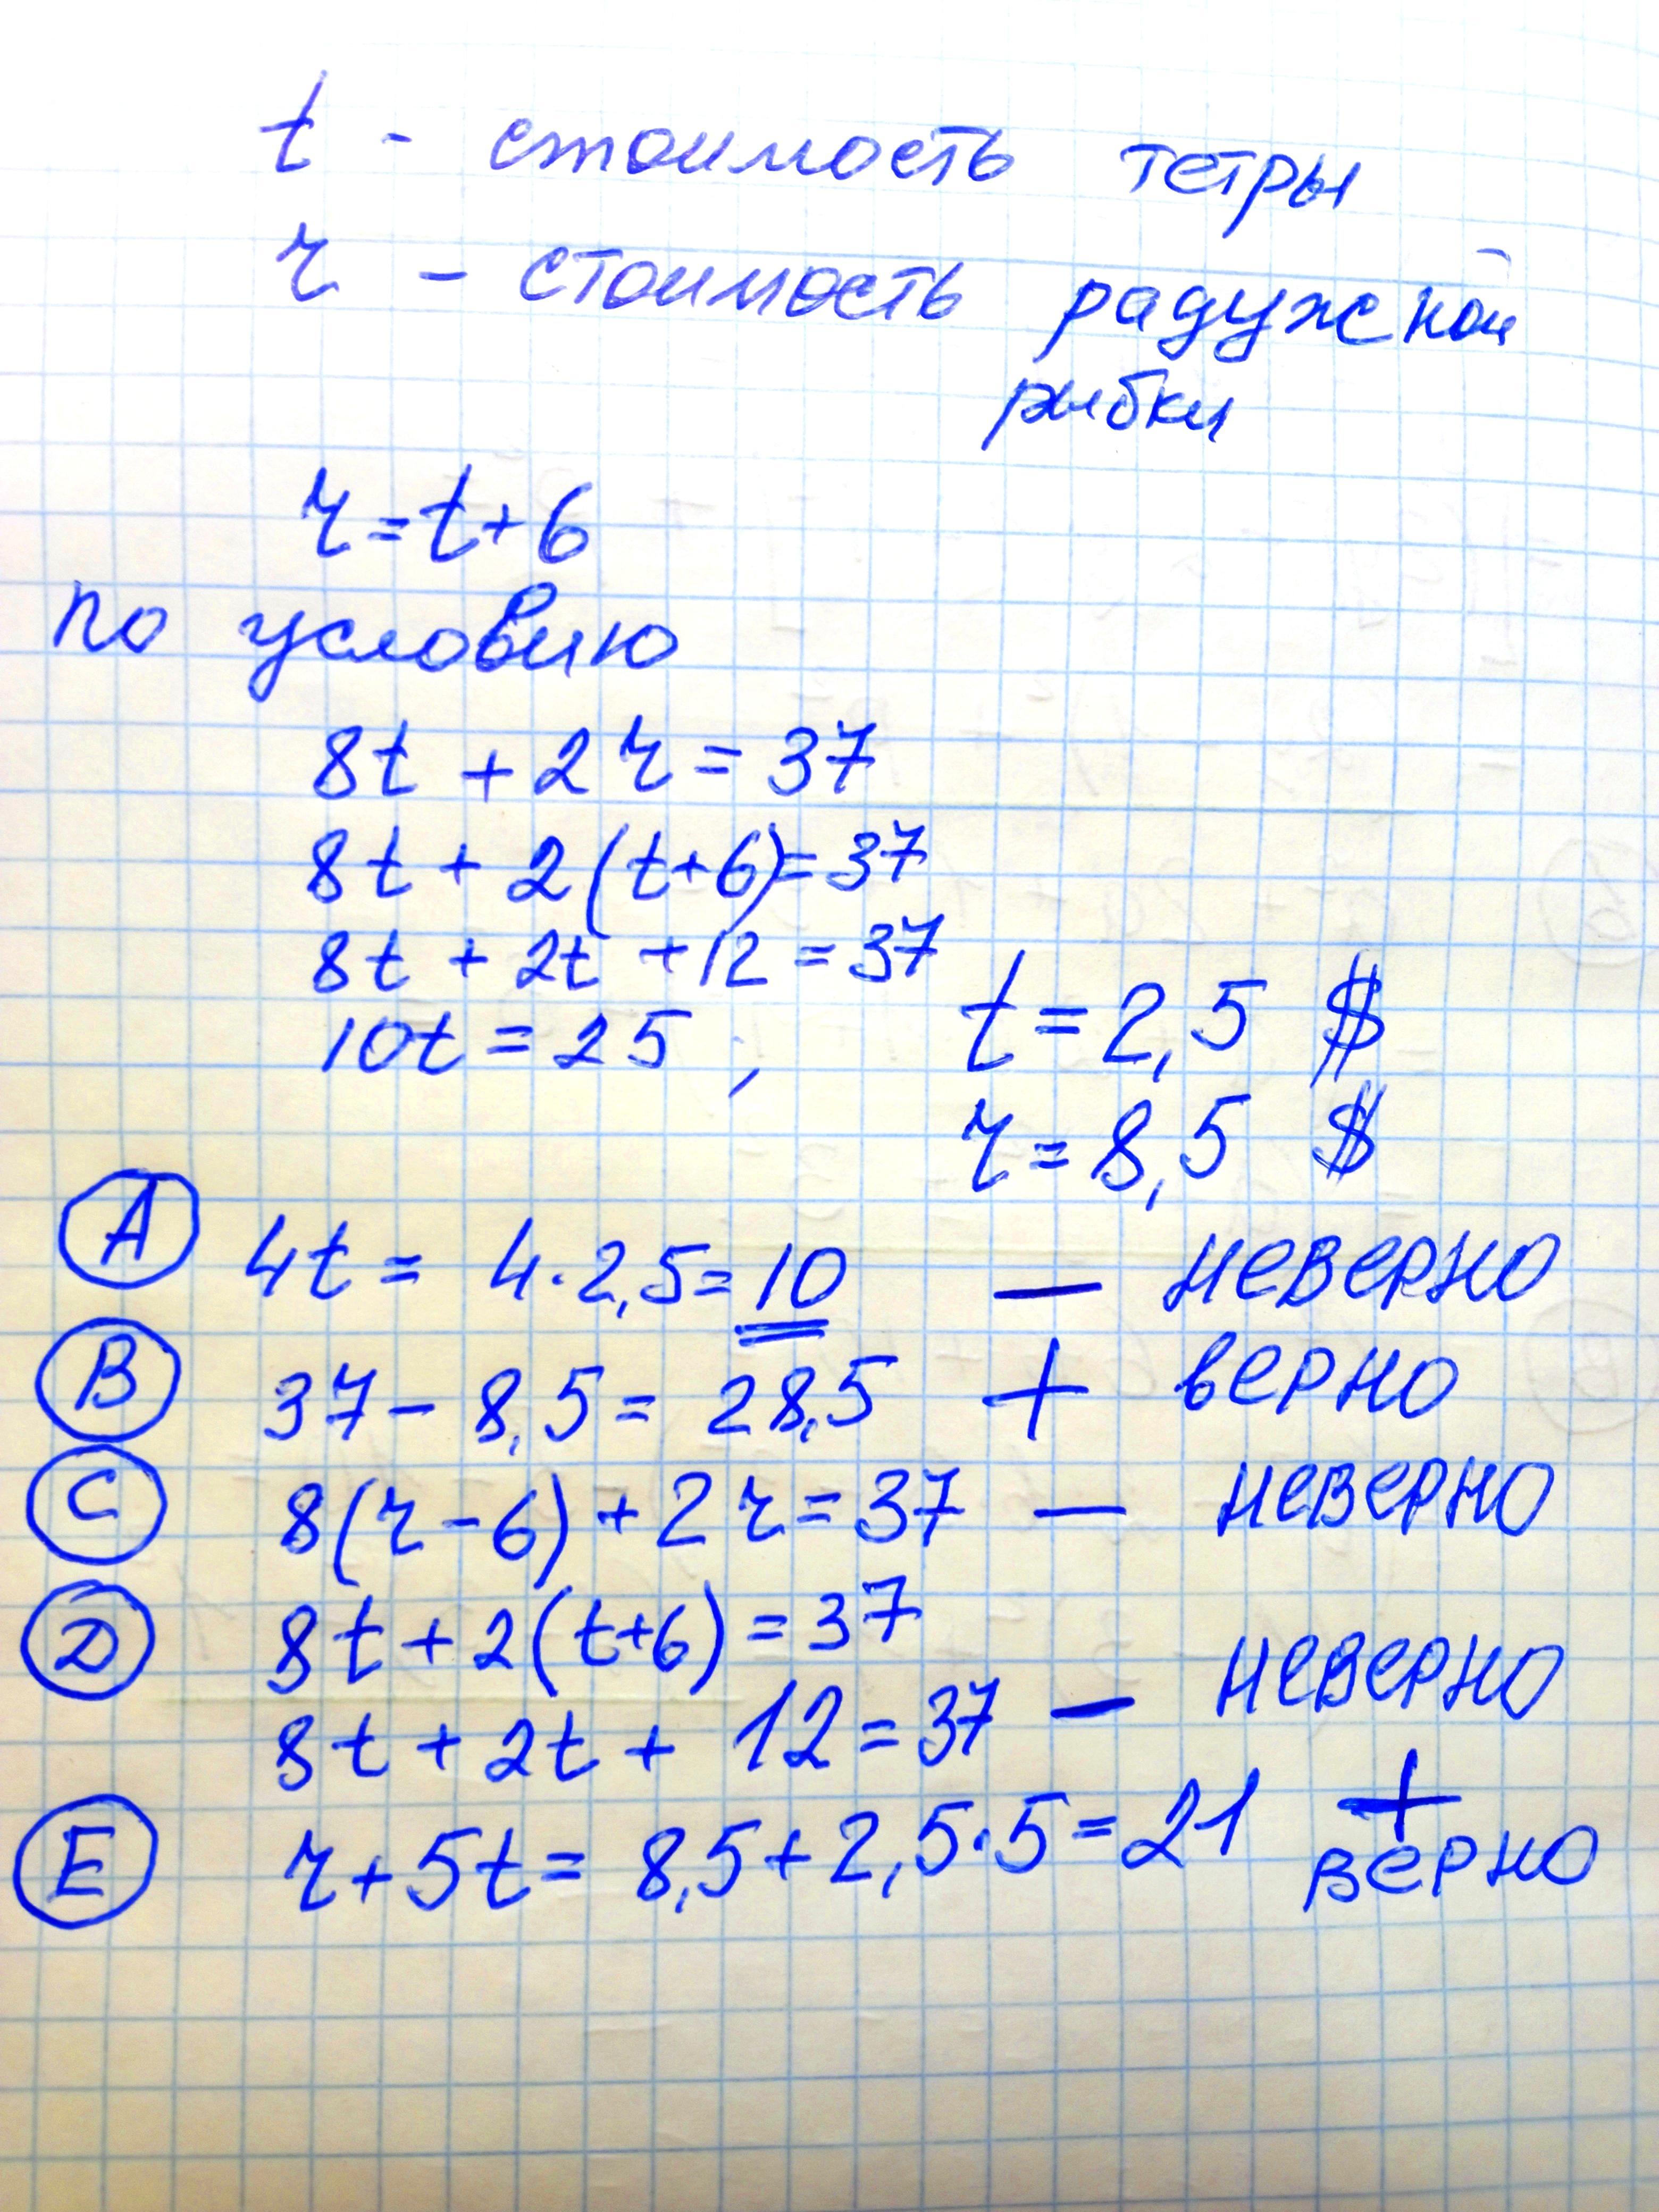 t - стоимость тетры
r - стоимость радужной
рыбки
r = t + 6
По условию
8t + 2r = 37
8t + 2(t+6) = 37
8t + 2t + 12 = 37
10t = 25 ; t = 2,5 $
r = 8,5 $
A 4t = 4·2,5 = 10 — неверно
B 37 - 8,5 = 28,5 + верно
C 8(r-6) + 2r = 37 — неверно
D 8t + 2(t+6) = 37
8t + 2t + 12 = 37 — неверно
E r + 5t = 8,5 + 2,5·5 = 21 + верно